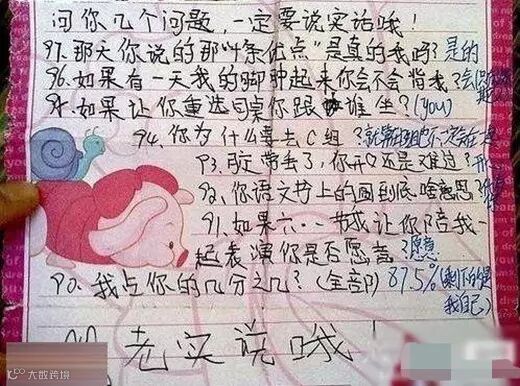 问你几个问题，一定要说实话哦！
97.那天你说的那"4条优点"是真的我吗？是的
96.如果有一天我的脚肿起来你会不会背我？会
95.如果让你重选同桌你跟谁坐？(you)
94.你为什么要去C组？
93.豆芷带丢了，你开心还是难过？开
92.你语文书上的画到底啥意思
91.如果六一节我让你陪我一
起表演你是否愿意？愿意
90.我占你的几分之几？(全部) 87.5%(剩下的是
我自己)
老实说哦！
大数跨境